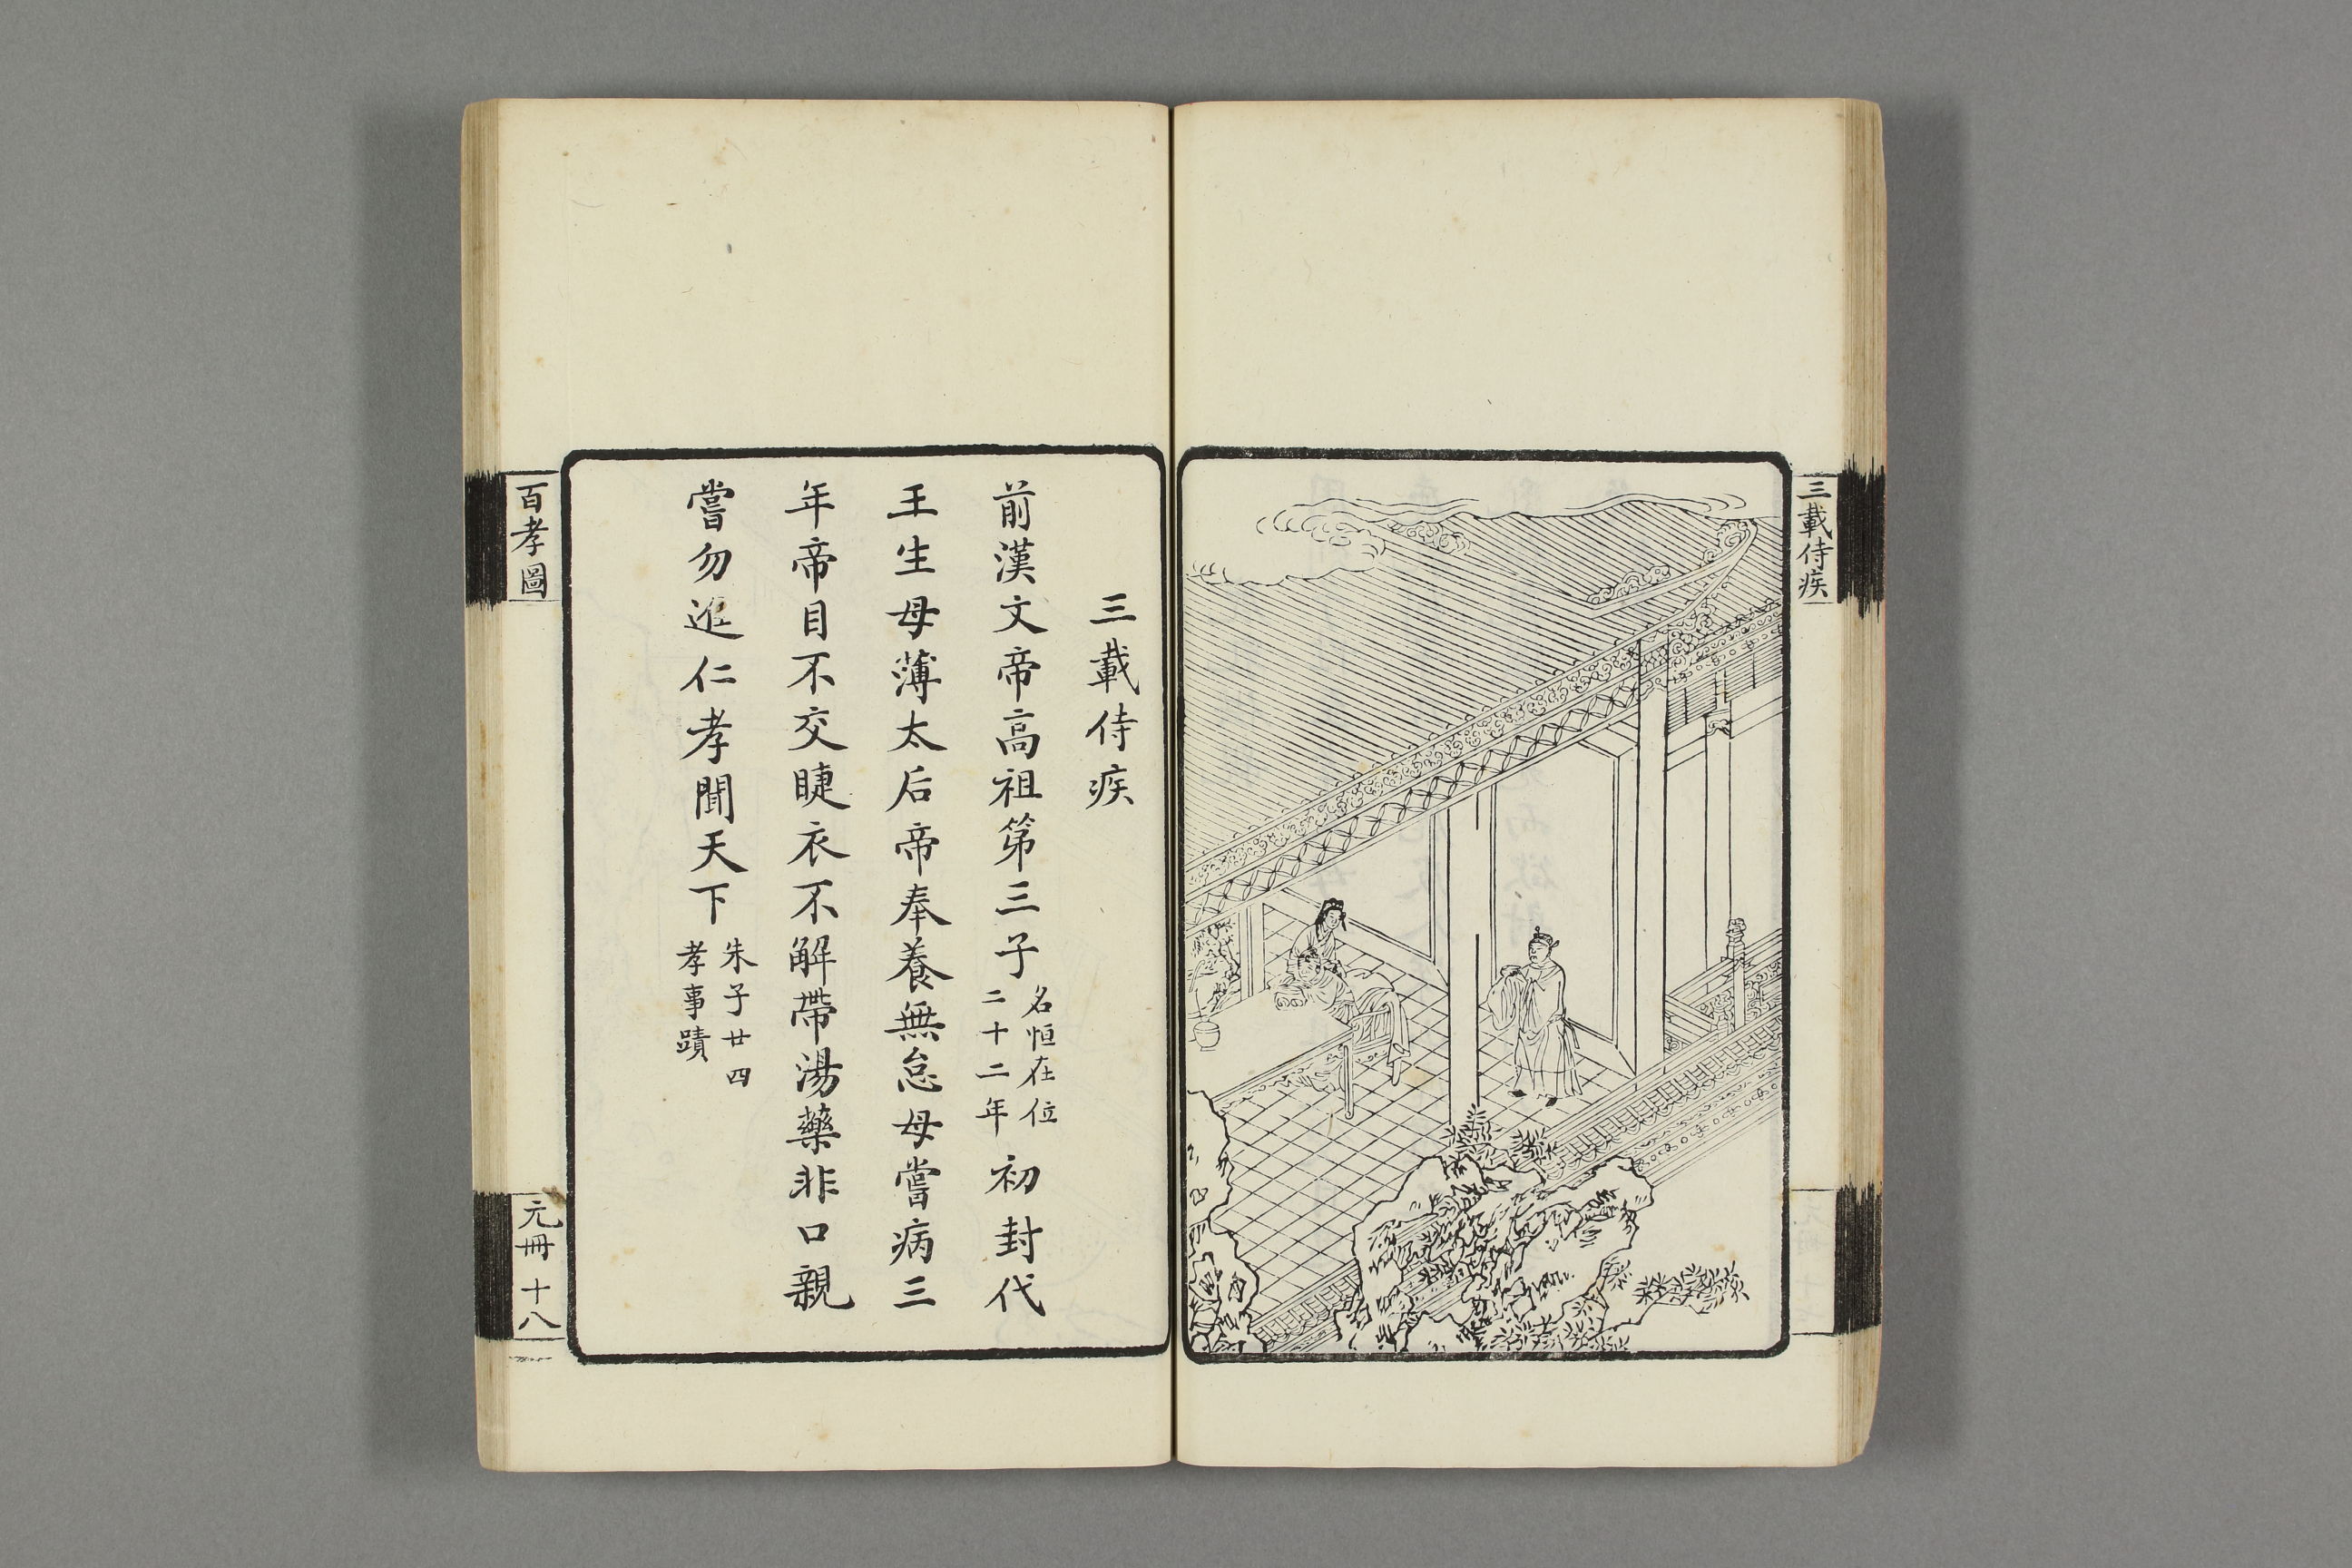 三載侍疾
三載侍疾
前漢文帝高祖第三子名恒在位二十二年初封代
王生母薄太后帝奉養無怠母嘗病三
年帝目不交睫衣不解帶湯藥非口親
嘗勿進仁孝聞天下朱子廿四孝事蹟
百孝圖
元冊 十八